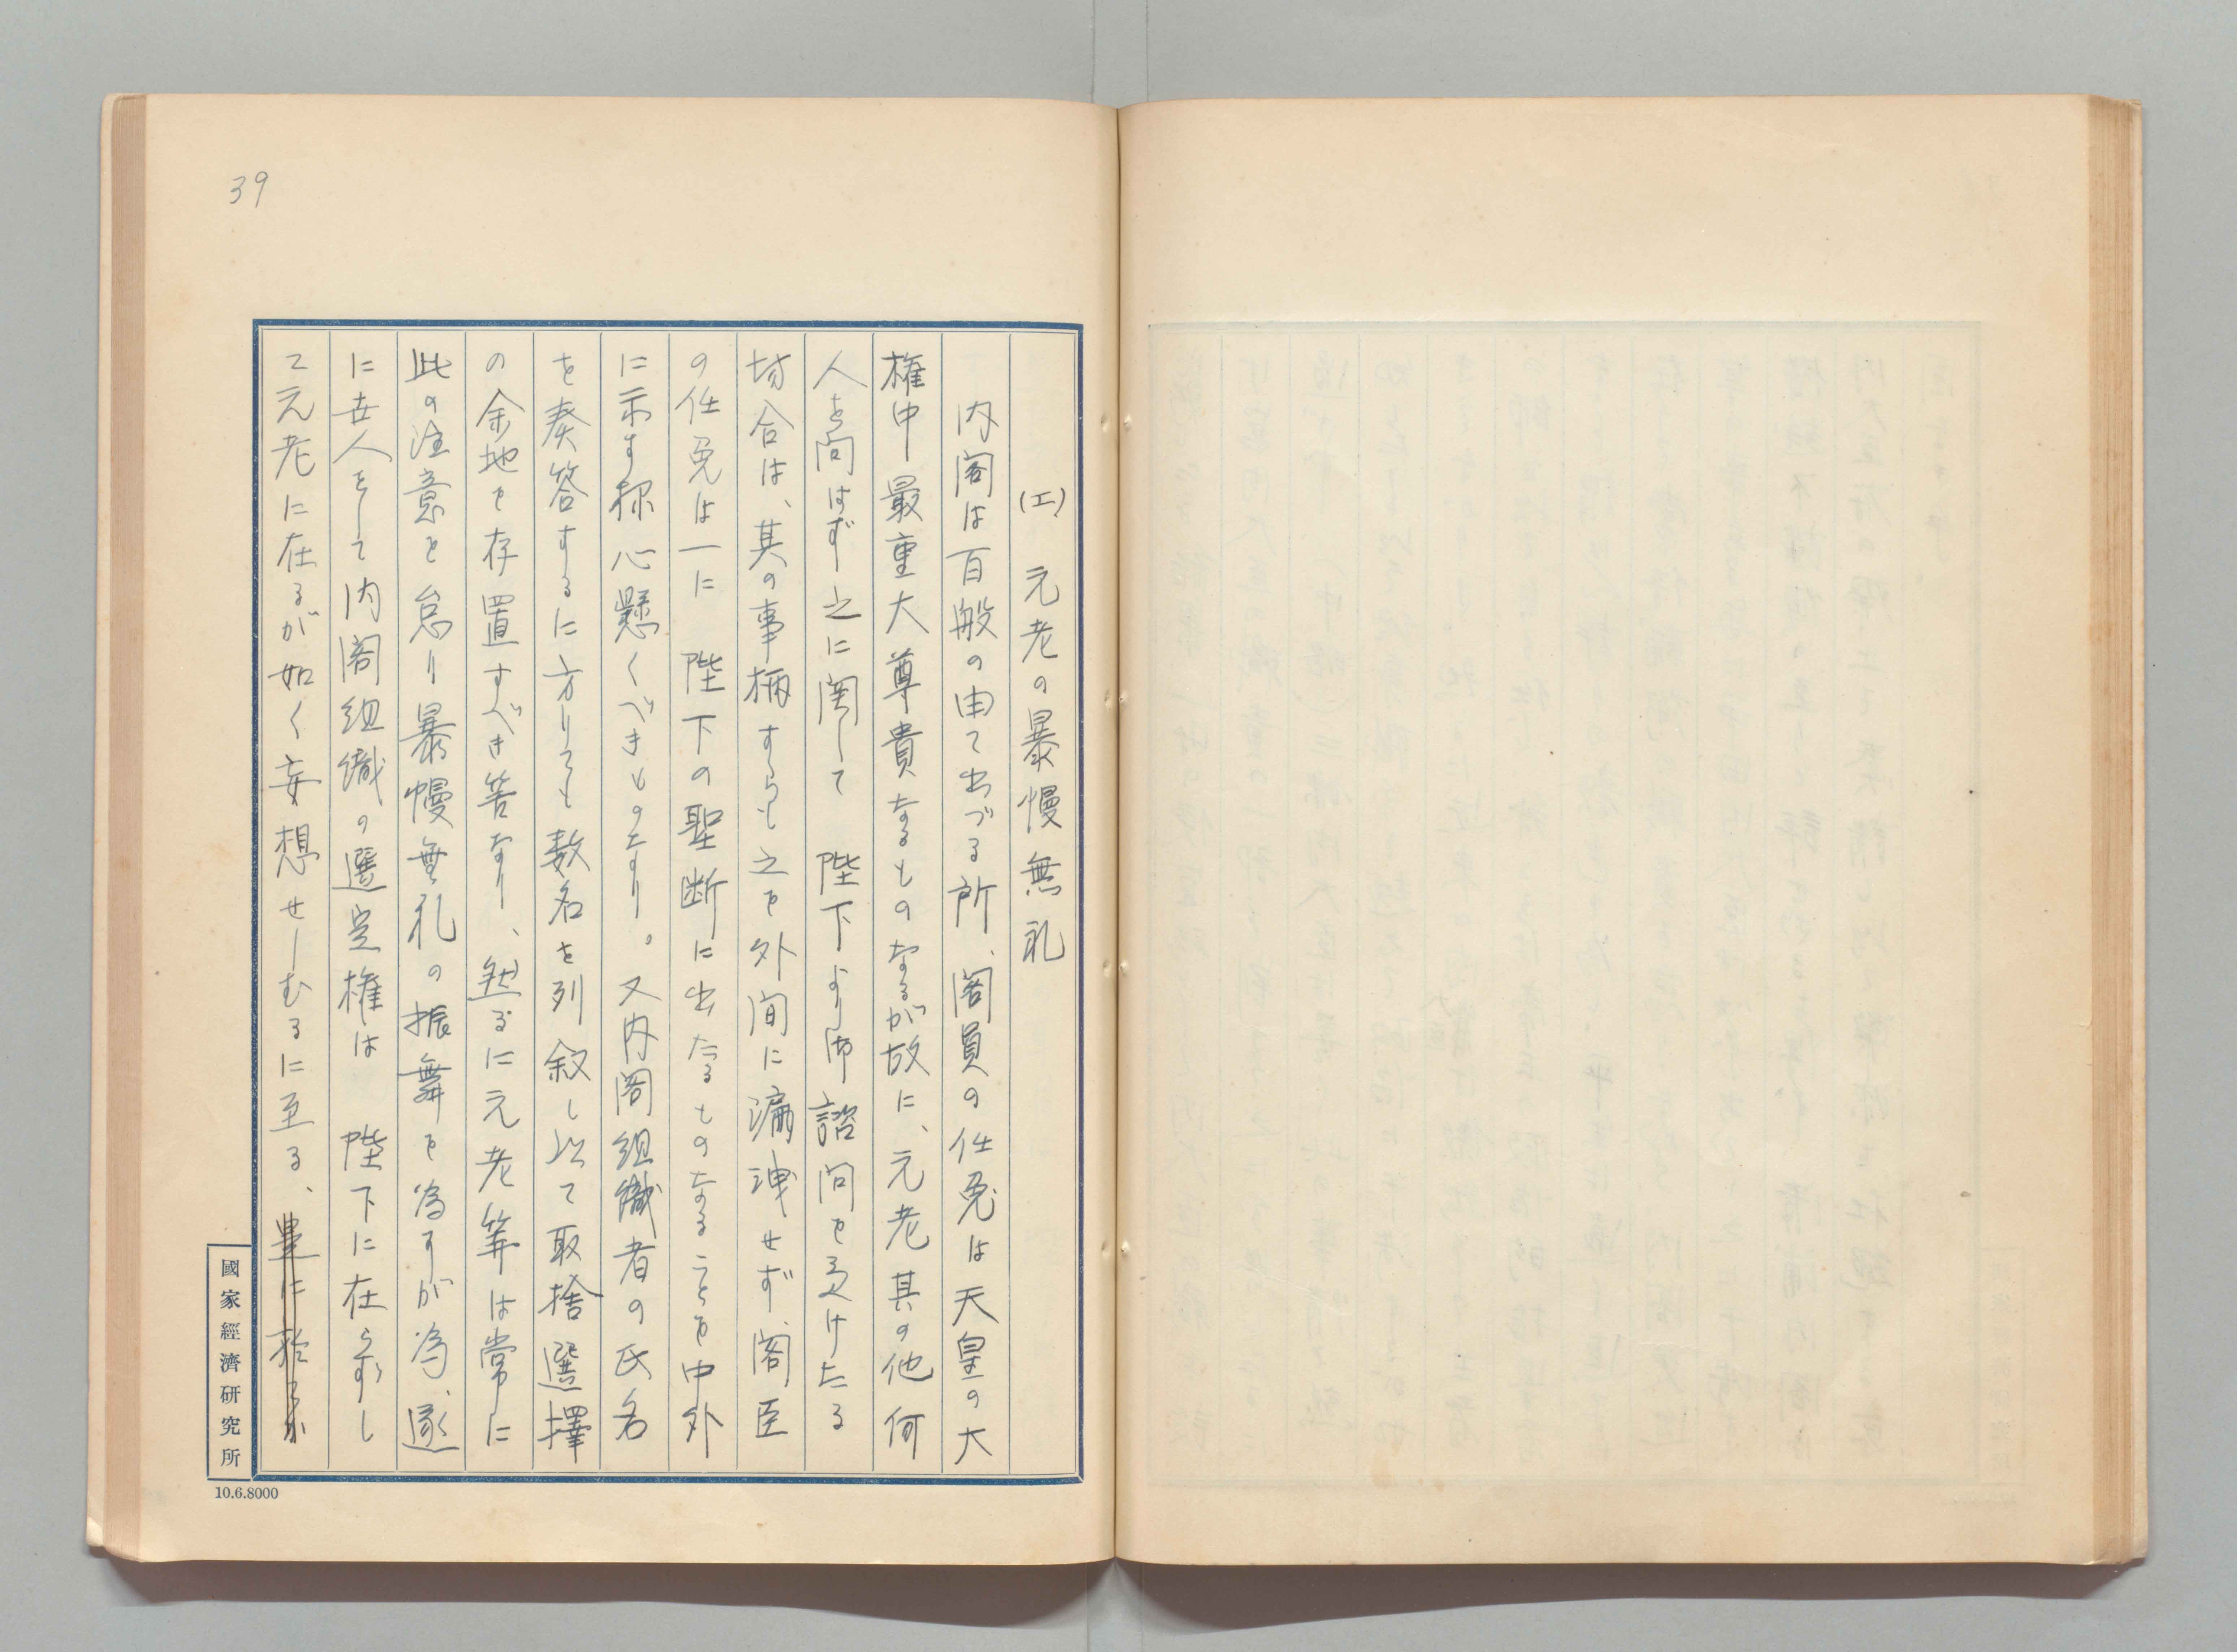 39
(エ)　元老の暴慢無礼
内閣は百般の由て出づる所、閣員の任免は天皇の大
権中最重大尊貴なるものなるが故に、元老其の他何
人を問はず之に関して　陛下より御諮問を受けたる
場合は、其の事柄すらも之を外間に漏洩せず、閣臣
の任免は一に　陛下の聖断に出たるものなることを中外
に示す様心懸くべきものなり。又内閣組織者の氏名
を奏答するに方りても数名を列叙し以て取捨選擇
の余地を存置すべき筈なり、然るに元老等は常に
此の注意を怠り暴慢無礼の振舞を為すが為、遂
に世人をして内閣組織の選定権は　陛下に在らずし
て元老に在るが如く妄想せしむるに至る、
國家經濟研究所
10.6.8000